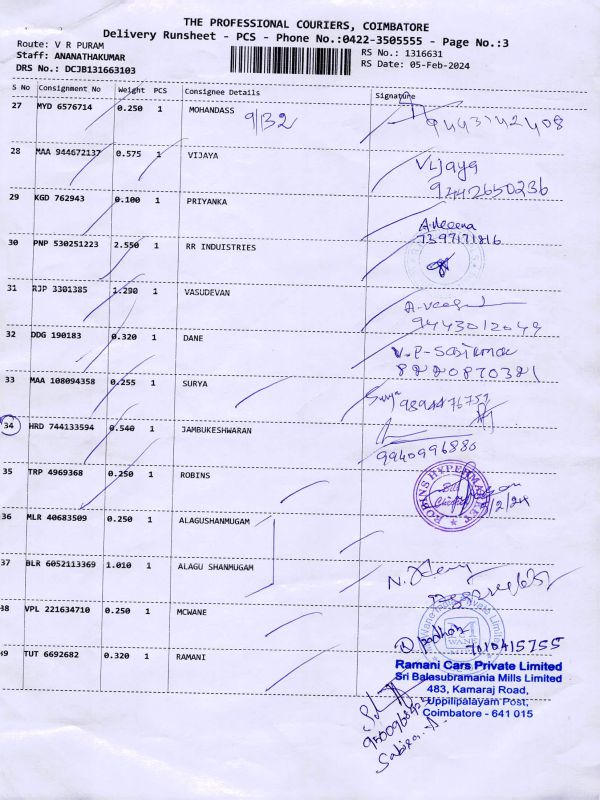 THE PROFESSIONAL COURIERS, COIMBATORE
Delivery Runsheet - PCS - Phone No.:0422-3505555 - Page No.:3
Route: V R PURAM
RS No.: 1316631
Staff: ANANATHAKUMAR
RS Date: 05-Feb-2024
DRS No.: DCJB131663103
S No Consignment No Weight PCS Consignee Details Signature
27 MYD 6576714 0.250 1 MOHANDASS 9/132
28 MAA 944672137 0.575 1 VIJAYA Vijaya
9442650236
29 KGD 762943 0.100 1 PRIYANKA
7397171816
30 PNP 530251223 2.550 1 RR INDUISTRIES
31 RJP 3301385 1.290 1 VASUDEVAN
9443012049
32 DDG 190183 0.320 1 DANE
8220870321
33 MAA 108094358 0.255 1 SURYA Surya
9894476757
34 HRD 744133594 0.540 1 JAMBUKESHWARAN
9940996880
35 TRP 4969368 0.250 1 ROBINS
ROBINS HYPERMARKET
36 MLR 40683509 0.250 1 ALAGUSHANMUGAM
37 BLR 6052113369 1.010 1 ALAGU SHANMUGAM
38 VPL 221634710 0.250 1 MCWANE
7010415755
49 TUT 6692682 0.320 1 RAMANI
Ramani Cars Private Limited
Sri Balasubramania Mills Limited
483, Kamaraj Road,
Uppilipalayam Post,
Coimbatore - 641 015